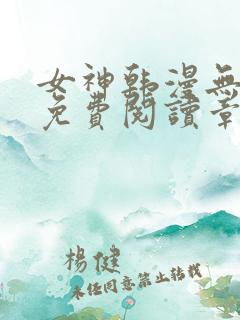 女神韩漫無
免費閱讀章
楊健
未經同意禁止轉載